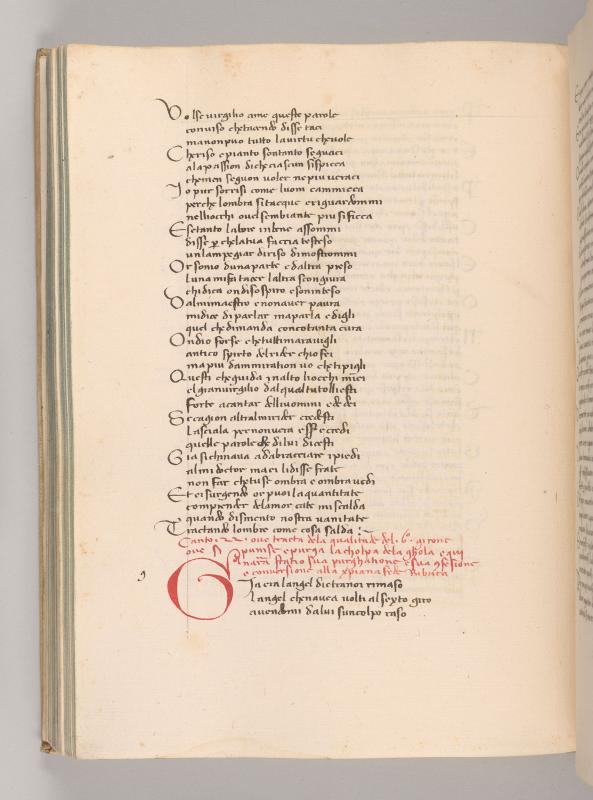 Volse virgilio ame queste parole
conuiso chetacendo disse taci
manonpuo tutto lauirtu cheuole
Cheriso epianto sontanto seguaci
alapassion dicheciascun sispicca
chemen seguon uoler nepiu ueraci
Io pur sorrisi come luom cammicca
perche lombra sitacque eriguardommi
neliocchi ouelsembiante piu sificca
Esetanto labore inbene assommi
disse per chelatua faccia testeso
unlampegiar diriso dimostrommi
Or sonio dunaparte edaltra preso
luna mifa tacer laltra scongiura
chidica ondi sospiro esoninteso
Dalmimaestro enonauer paura
midice di parlar maparla edigli
quel chedimanda concotanta cura
Ondio forse chetuttimarauigli
antico spirto delrider chiofei
mapiu dammiration uo chetipigli
Questi cheguida inalto liocchi miei
elgranuirgilio dalqualtutolliesti
forte acantar delliuomini ededei
Secagion altralmirider credesti
lasciala pernonuera esser ecredi
quelle parole che dilui dicesti
Gia sichinaua adabracciare ipiedi
almi doctor maei lidisse frate
non far chetuse ombra e ombra uedi
Et ei surgendo or puoi laquantitate
comprender delamor cate miscalda
quando dismento nostra uanitate
Tractando lombre come cosa salda
Canto oue tracta dela qualitade del .6°. girone
oue si punisse epurga lacholpa dela ghola e qui
narra statio sua purghatione e sua confessione
e conuersione alla xpiana fede Rubrica
Gia era langel dietroanoi rimaso
langel chenauea uolti alsexto giro
auendomi dalui suncolpo raso